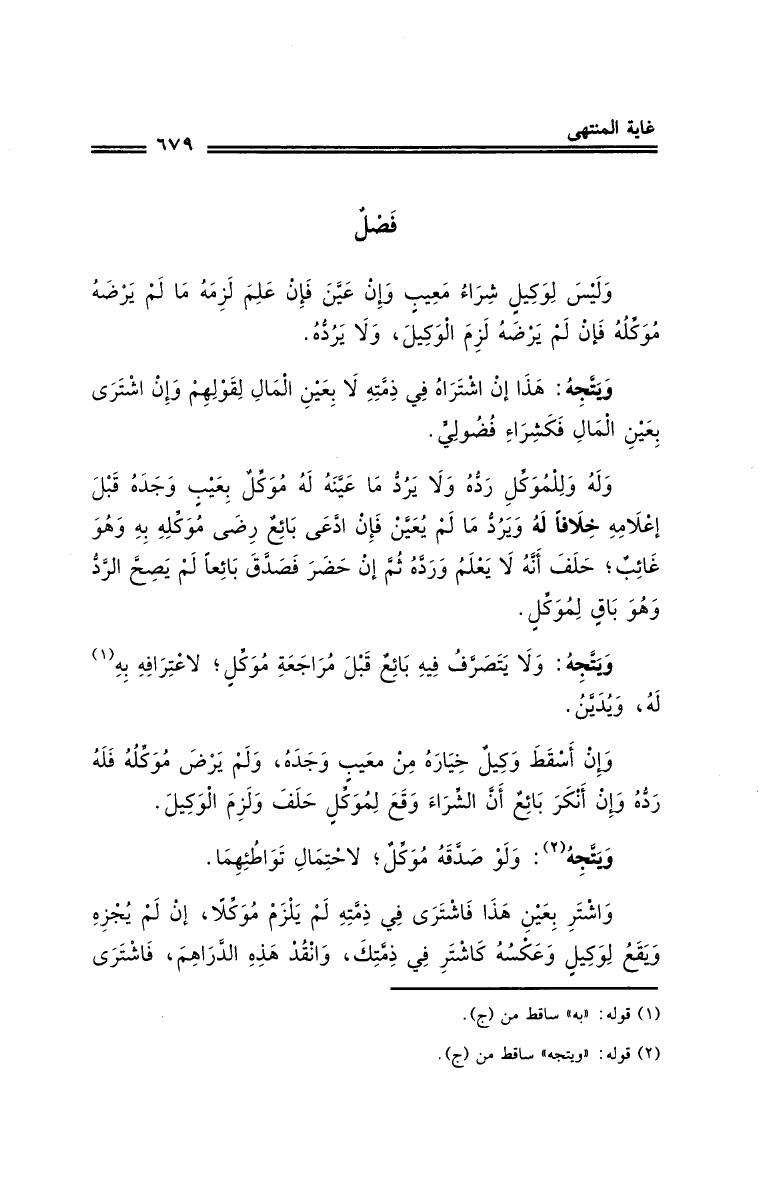 غاية المنتهى
٦٧٩
فَصْلٌ
وَلَيْسَ لِوَكِيلٍ شِرَاءُ مَعِيبٍ وَإِنْ عَيَّنَ فَإِنْ عَلِمَ لَزِمَهُ مَا لَمْ يَرْضَهُ
مُوَكِّلُهُ فَإِنْ لَمْ يَرْضَهُ لَزِمَ الْوَكِيلَ، وَلَا يَرُدُّهُ.
وَيَتَّجِهُ: هَذَا إِنْ اشْتَرَاهُ فِي ذِمَّتِهِ لَا بِعَيْنِ الْمَالِ لِقَوْلِهِمْ وَإِنْ اشْتَرَى
بِعَيْنِ الْمَالِ فَكَشِرَاءِ فُضُولِيٍّ.
وَلَهُ وَلِلْمُوَكِّلِ رَدُّهُ وَلَا يَرُدُّ مَا عَيَّنَهُ لَهُ مُوَكِّلٌ بِعَيْبٍ وَجَدَهُ قَبْلَ
إعْلَامِهِ خِلَافاً لَهُ وَيَرُدُّ مَا لَمْ يُعَيَّنْ فَإِنْ ادَّعَى بَائِعٌ رِضَى مُوَكِّلِهِ بِهِ وَهُوَ
غَائِبٌ؛ حَلَفَ أَنَّهُ لَا يَعْلَمُ وَرَدَّهُ ثُمَّ إِنْ حَضَرَ فَصَدَّقَ بَائِعاً لَمْ يَصِحَّ الرَّدُّ
وَهُوَ بَاقٍ لِمُوَكِّلٍ.
وَيَتَّجِهُ: وَلَا يَتَصَرَّفُ فِيهِ بَائِعٌ قَبْلَ مُرَاجَعَةِ مُوَكِّلٍ؛ لاعْتِرَافِهِ بِهِ(١)
لَهُ، وَيُدَيَّنُ.
وَإِنْ أَسْقَطَ وَكِيلٌ خِيَارَهُ مِنْ معَيبٍ وَجَدَهُ، وَلَمْ يَرْضَ مُوَكِّلُهُ فَلَهُ
رَدُّهُ وَإِنْ أَنْكَرَ بَائِعٌ أَنَّ الشِّرَاءَ وَقَعَ لِمُوَكِّلٍ حَلَفَ وَلَزِمَ الْوَكِيلَ.
وَيَتَّجِهُ(٢): وَلَوْ صَدَّقَهُ مُوَكِّلٌ؛ لاحْتِمَالِ تَوَاطُئِهِمَا.
وَاشْتَرِ بِعَيْنِ هَذَا فَاشْتَرَى فِي ذِمَّتِهِ لَمْ يَلْزَمْ مُوَكِّلًا، إنْ لَمْ يُجْزِهِ
وَيَقَعُ لِوَكِيلٍ وَعَكْسُهُ كَاشْتَرِ فِي ذِمَّتِكَ، وَانْقُدْ هَذِهِ الدَّرَاهِمَ، فَاشْتَرَى
(١) قوله: «به» ساقط من (ج).
(٢) قوله: «ويتجه» ساقط من (ج).